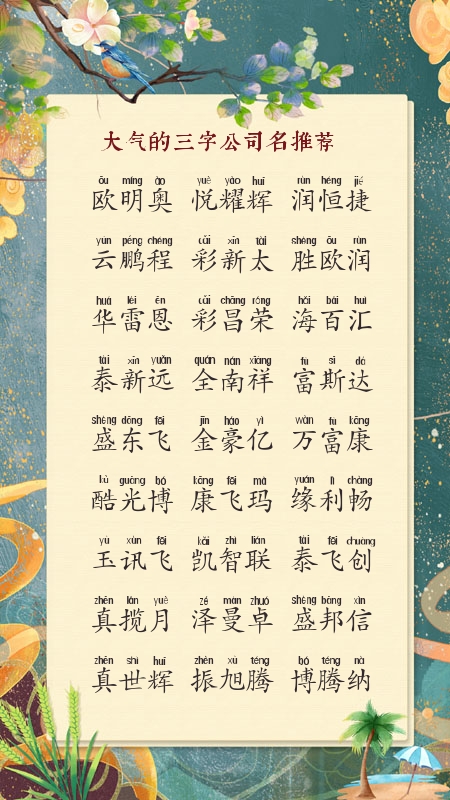 大气的三字公司名推荐
ōu míng ào yuè yào huī rùn héng jié
欧明奥 悦耀辉 润恒捷
yún péng chéng cǎi xīn tài shèng ōu rùn
云鹏程 彩新太 胜欧润
huá léi ēn cǎi chāng róng hǎi bǎi huì
华雷恩 彩昌荣 海百汇
tài xīn yuǎn quán nán xiáng fù sī dá
泰新远 全南祥 富斯达
shèng dōng fēi jīn háo yì wàn fù kāng
盛东飞 金豪亿 万富康
kù guāng bó kāng fēi mǎ yuán lì chàng
酷光博 康飞玛 缘利畅
yù xùn fēi kǎi zhì lián tài fēi chuàng
玉讯飞 凯智联 泰飞创
zhēn lǎn yuè zé màn zhuó shèng bāng xìn
真揽月 泽曼卓 盛邦信
zhēn shì huī zhèn xù téng bó téng nà
真世辉 振旭腾 博腾纳